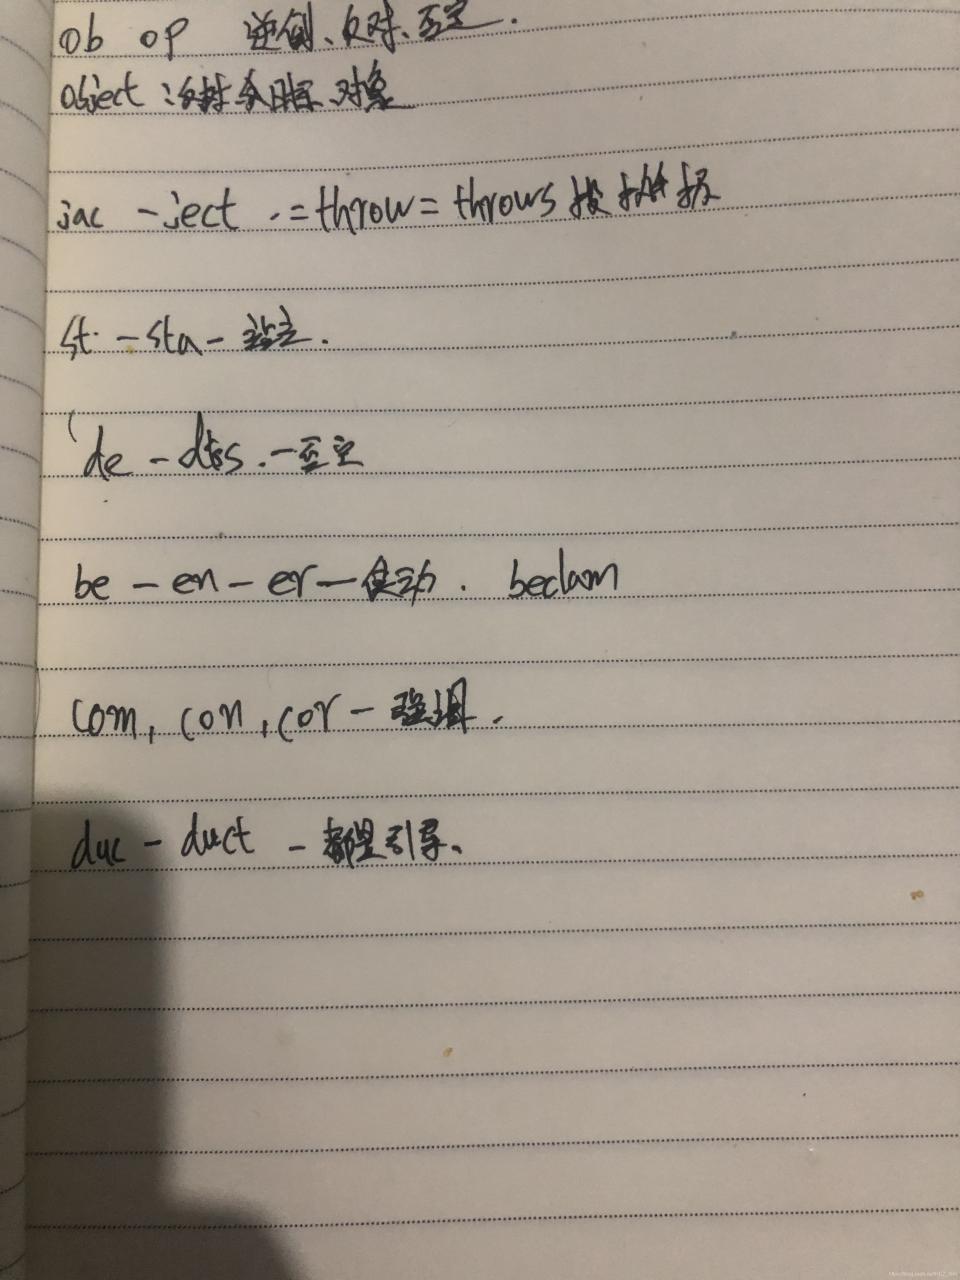 ob op 逆倒、反对、否定.
object : 反对 对象
jac -ject .=throw= throws 投 掷 扔
st -sta- 站立.
de - dis .-否定
be - en - er- 使动 . beclam
com, con, cor - 强调.
duc - duct - 都是引导、